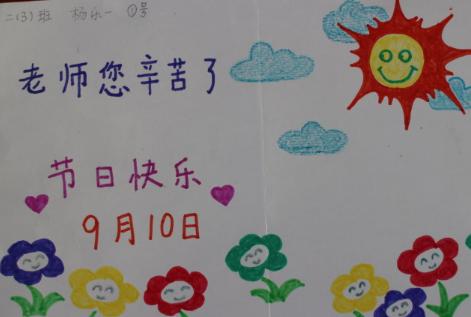 二(3)班 杨乐一 ①号
老师您辛苦了
节日快乐
9月10日